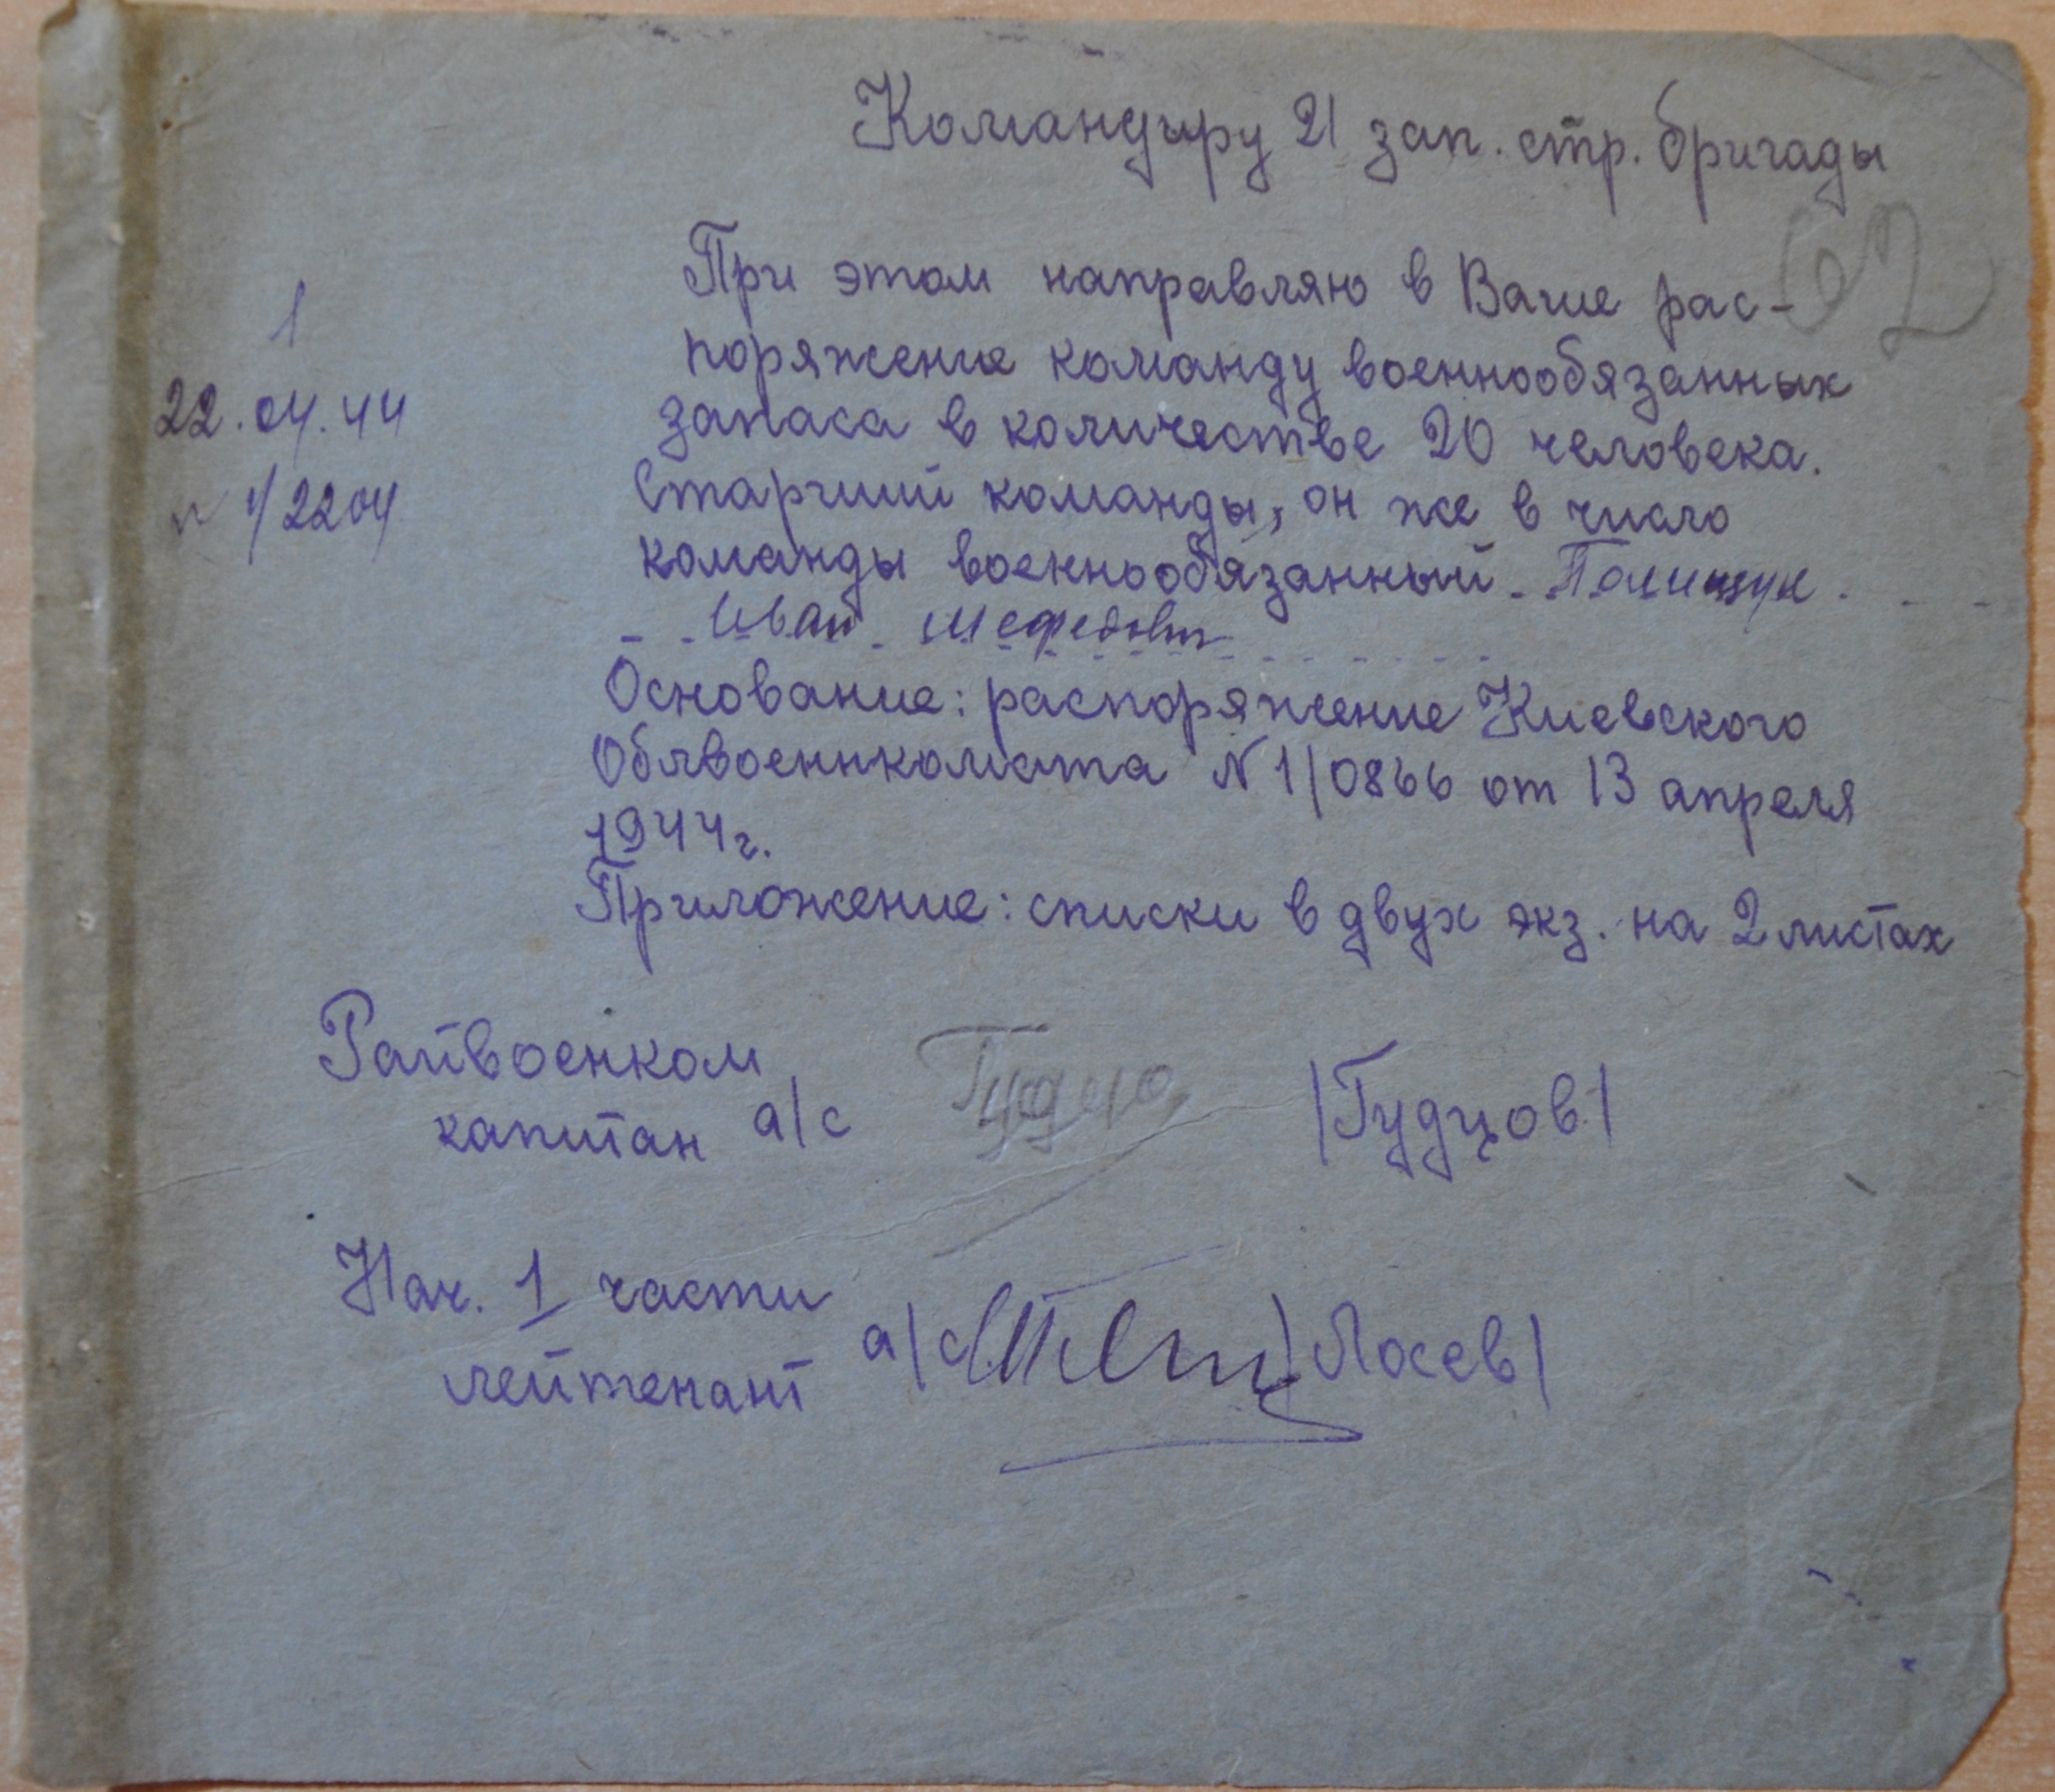 Командиру 21 зап. стр. бригады
62
При этом направляю в Ваше рас-
поряжение команду военнообязанных
запаса в количестве 20 человека.
Старший команды, он же в число
команды военнообязанный Полищук
Иван Мефедович
1
22.04.44
1/2204
Основание: распоряжение Киевского
Облвоенкомата N 1/0866 от 13 апреля
1944г.
Приложение: списки в двух экз. на 2 листах
Райвоенком
капитан а/с /Гудцов/
Нач. 1 части
лейтенант а/с /Лосев/